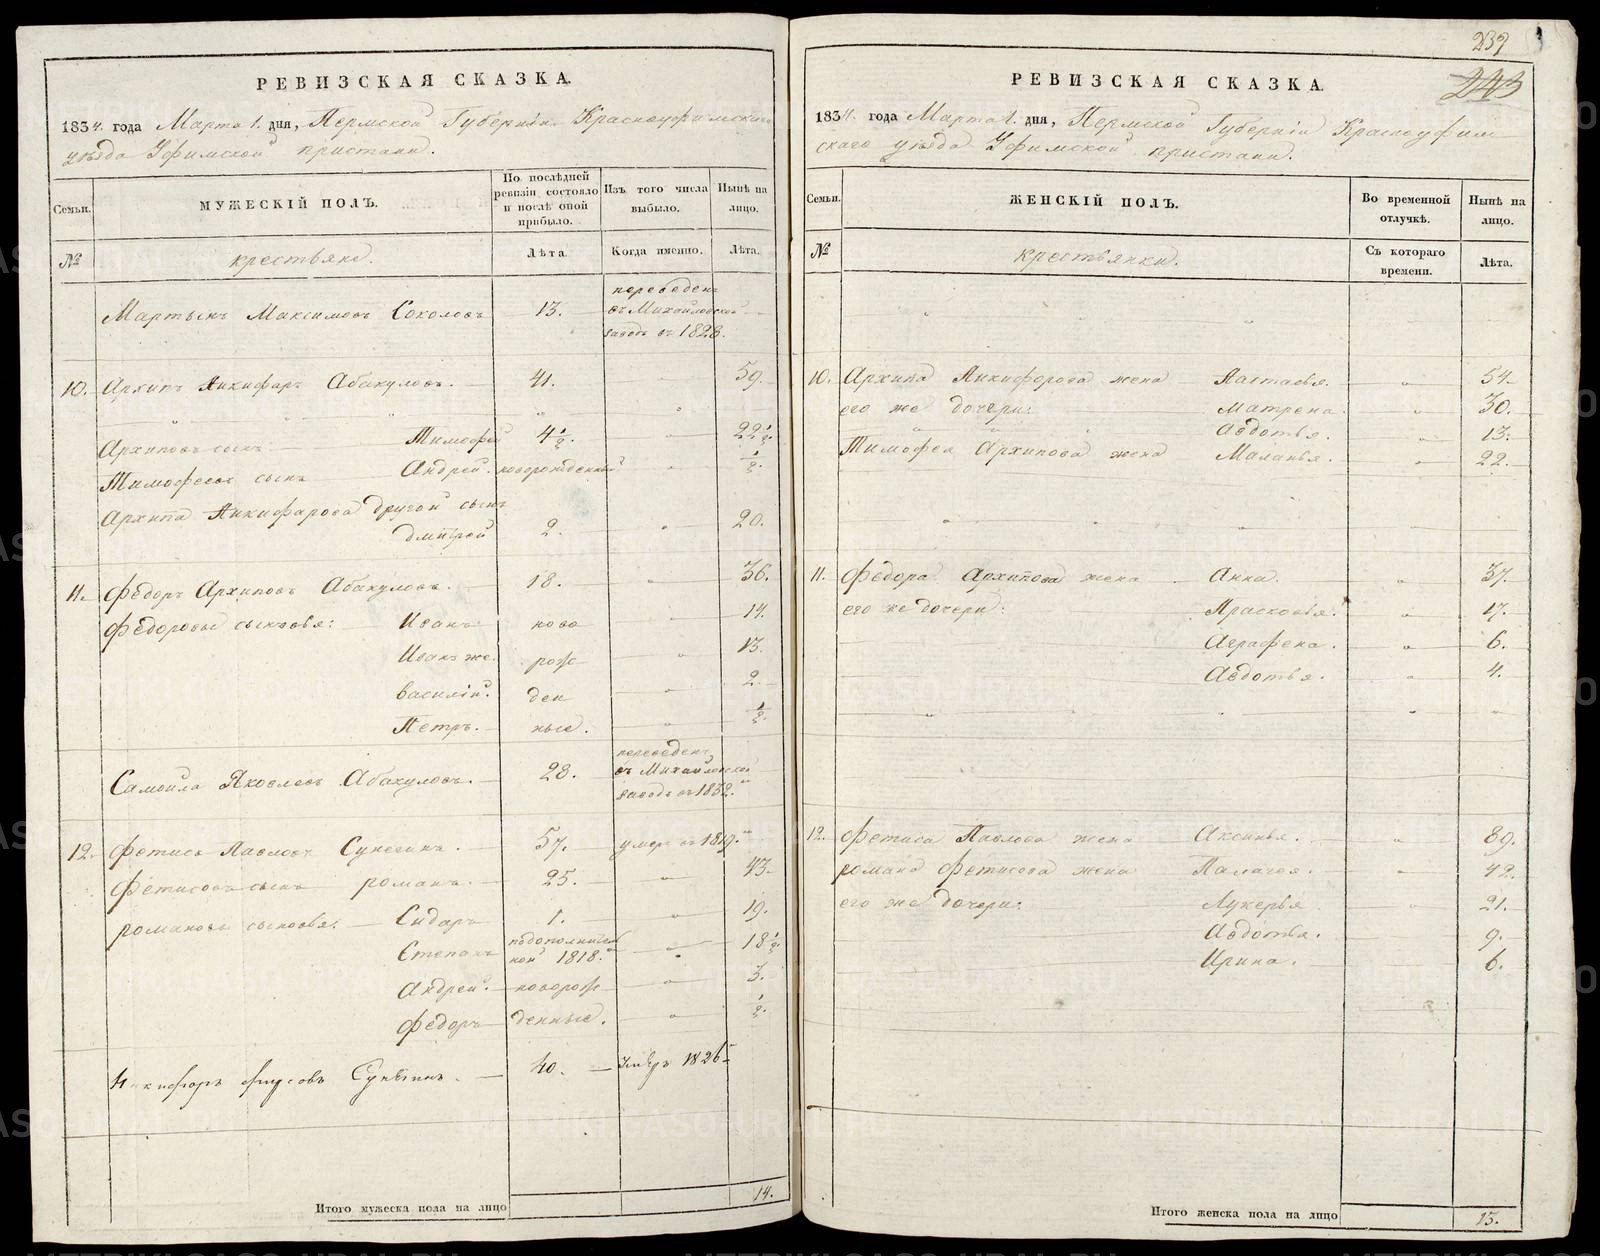 РЕВИЗСКАЯ СКАЗКА.
1834. года Марта 1. дня, Пермской Губернiи Красноуфимскаго
уѣзда Уфимской пристани.
Семьи.
МУЖЕСКIЙ ПОЛЪ.
По послѣдней ревизiи состояло и послѣ оной прибыло.
Изъ того числа выбыло.
Нынѣ на лицо.
№
крестьяне.
Лѣта.
Когда именно.
Лѣта.
Мартынъ Максимовъ Соколовъ 13. переведенъ въ Михайловской заводъ въ 1826.
10. Архипъ Никифоръ Абакумовъ. 41. 59.
Архиповъ сынъ Тимофей 4 1/2. 22 1/2.
Тимофеевъ сынъ Андрей. новорожденный 1/2.
Архипа Никифарова другой сынъ
Дмитрей 2. 20.
11. Федоръ Архиповъ Абакумовъ. 18. 36.
Федоровы сыновья: Иванъ ново 14.
Иванъ же. рож 13.
Василiй. ден 2.
Петръ. ные. 1/2.
Самойла Яковлевъ Абакумовъ. 28. переведенъ въ Михайловской заводъ въ 1832.
12. Фетисъ Павловъ Сунегинъ. 57. умеръ въ 1819.
Фетисовъ сынъ романъ. 25. 43.
романовы сыновья. Сидаръ 1. 19.
Степанъ подополнительной 1818. 18 1/2.
Андрей. новорож 3.
Федоръ денные. 1/2.
Сунегинъ. 40. Умеръ 1826
Итого мужеска пола на лицо 14.
237
243
РЕВИЗСКАЯ СКАЗКА.
1834. года Марта 1. дня, Пермской Губернiи Красноуфим
скаго уѣзда Уфимской пристани.
Семьи.
ЖЕНСКIЙ ПОЛЪ.
Во временной отлучкѣ.
Нынѣ на лицо.
№
крестьянки.
Съ котораго времени.
Лѣта.
10. Архипа Никифорова жена Настасья. 54.
его же дочери: Матрена. 30.
Авдотья. 13.
Тимофея Архипова жена Маланья. 22.
11. Федора Архипова жена Анна. 37.
его же дочери: Прасковья. 17.
Аграфена. 6.
Авдотья. 4.
12. Фетиса Павлова жена Аксинья. 89.
романа Фетисова жена Палагея. 42.
его же дочери: Лукерья 21.
Авдотья. 9.
Ирина. 6.
Итого женска пола на лицо 13.